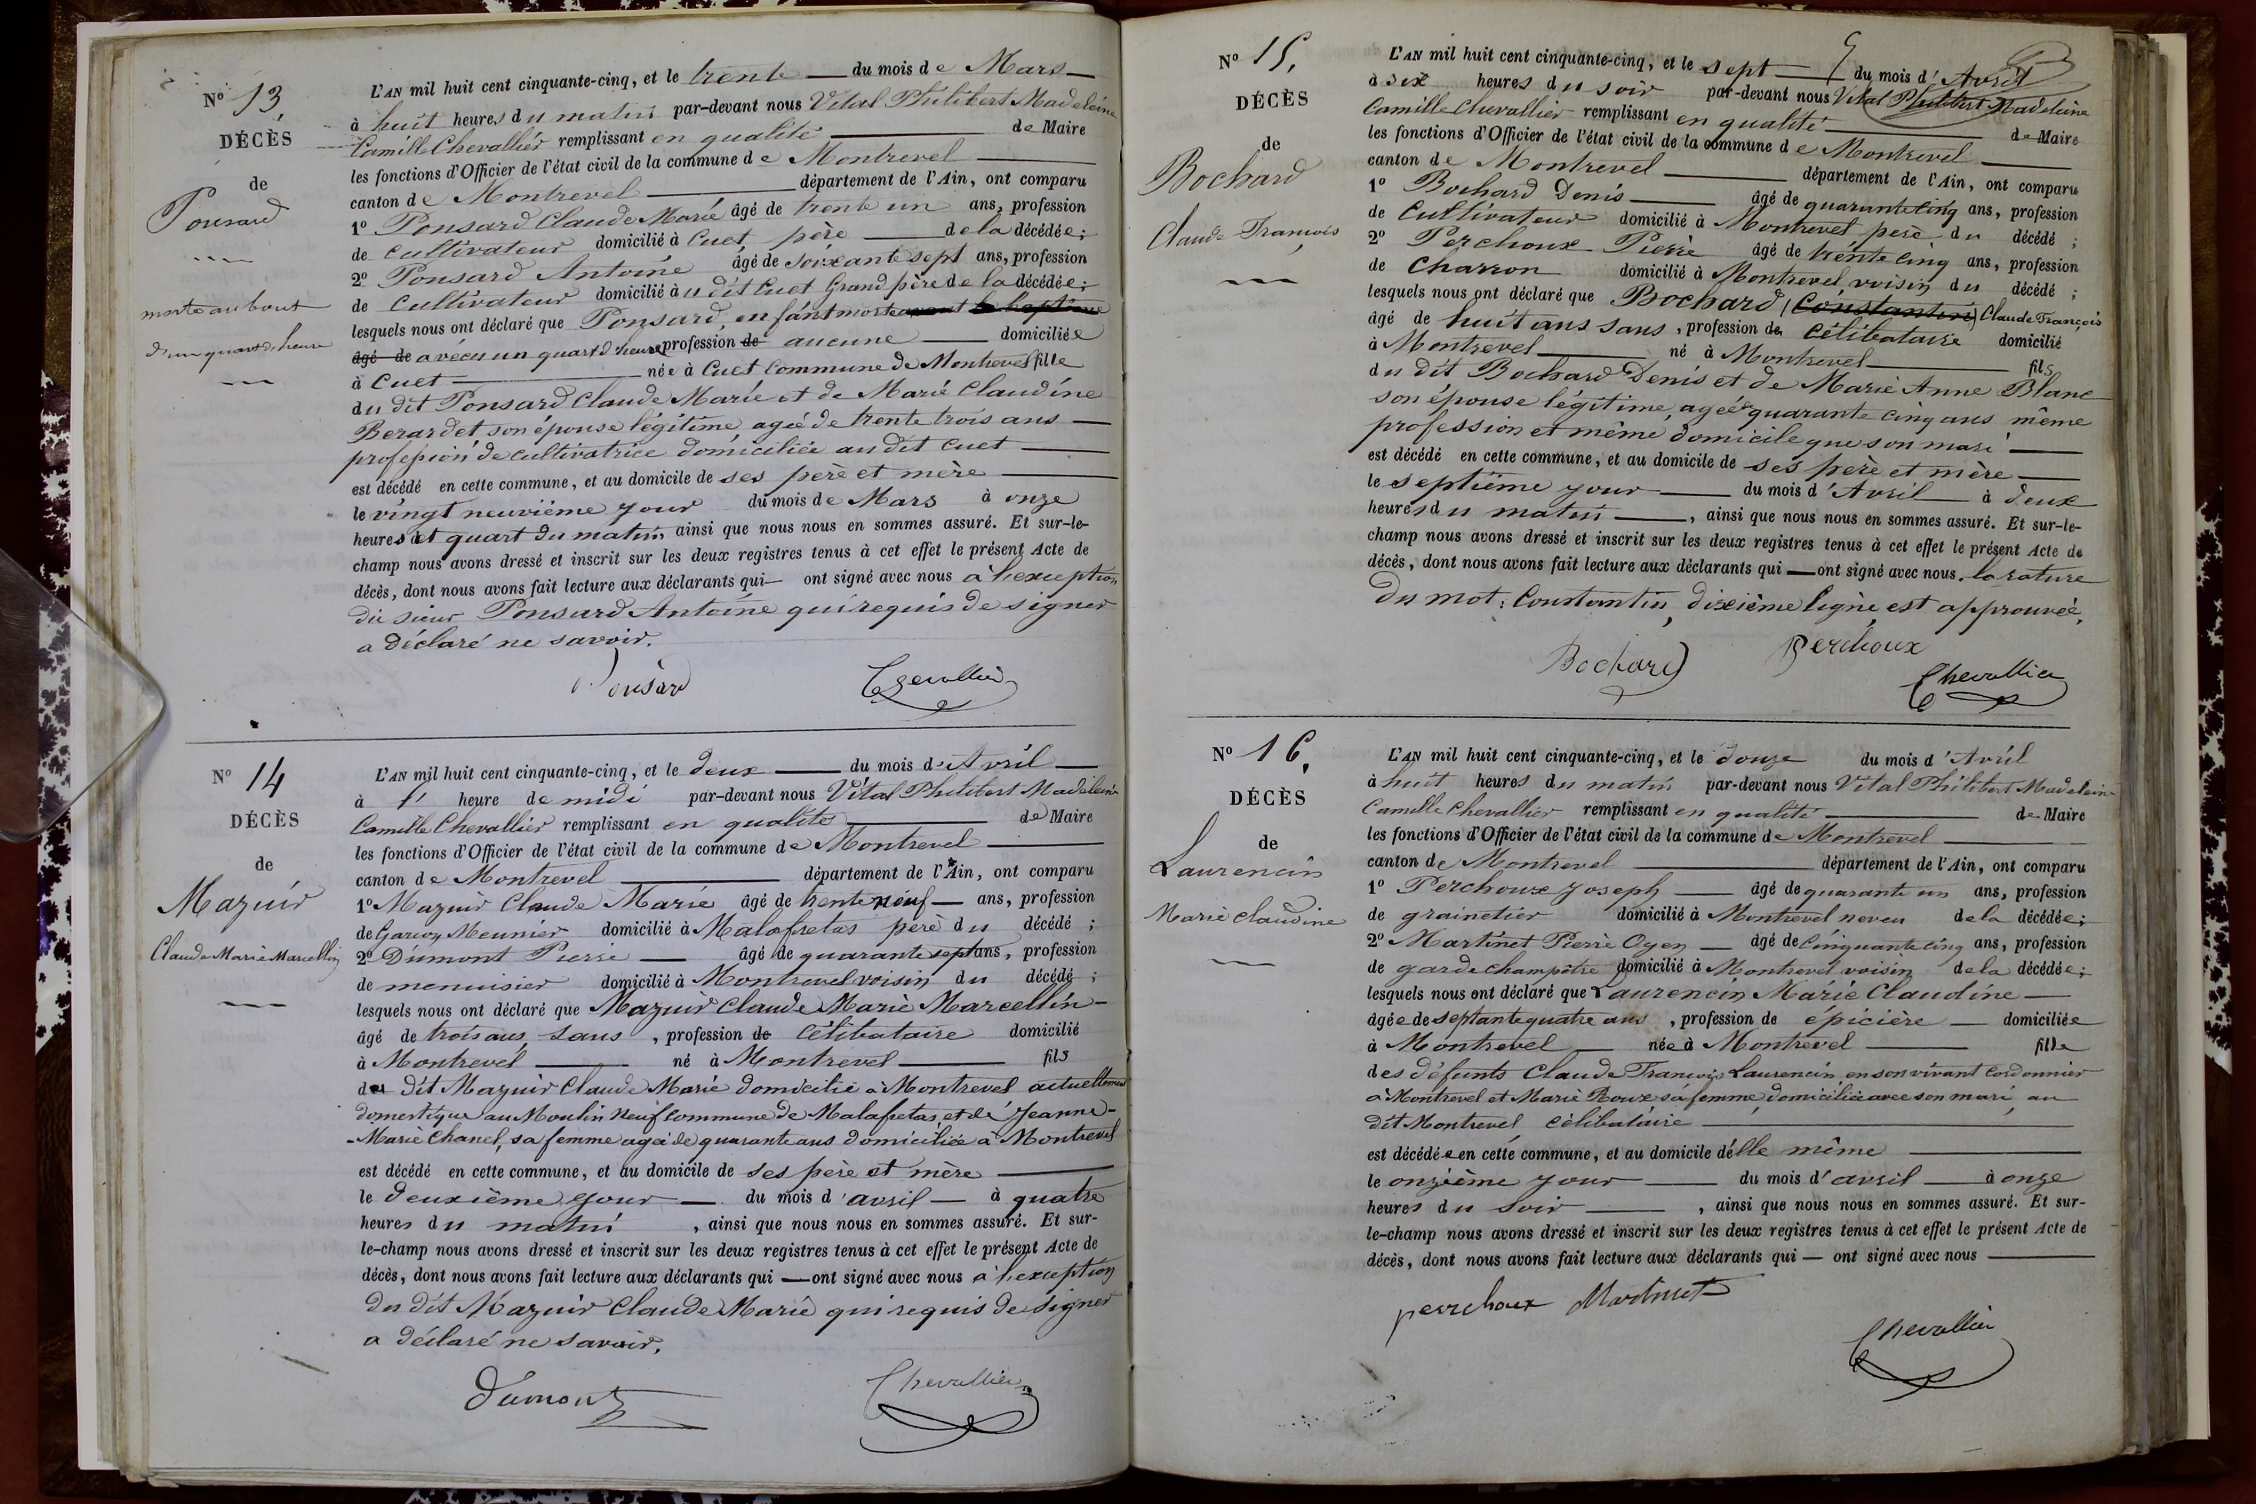 N° 13,
DÉCÈS
de
Ponsard
morte au bout
d'un quart d'heure
L'AN mil huit cent cinquante-cinq, et le trente du mois de Mars
à huit heures du matin par-devant nous Vital Philibert Madeleine
Camille Chevallier remplissant en qualité de Maire
les fonctions d'Officier de l'état civil de la commune de Montrevel
canton de Montrevel département de l'Ain, ont comparu
1° Ponsard Claude Marie âgé de trente un ans, profession
de cultivateur domicilié à Cuet père de la décédée;
2° Ponsard Antoine âgé de soixante sept ans, profession
de cultivateur domicilié à u dit Cuet Grand père de la décédée;
lesquels nous ont déclaré que Ponsard, enfant morte avant le baptême
âgé de a vécu un quart d'heure profession de aucune domiciliée
à Cuet née à Cuet Commune de Montrevel fille
du dit Ponsard Claude Marie et de Marie Claudine
Berardet, son épouse légitime agée de trente trois ans
profession de cultivatrice domiciliée au dit Cuet
est décédé en cette commune, et au domicile de ses père et mère
le vingt neuvième jour du mois de Mars à onze
heures et quart du matin, ainsi que nous nous en sommes assuré. Et sur-le-
champ nous avons dressé et inscrit sur les deux registres tenus à cet effet le présent Acte de
décès, dont nous avons fait lecture aux déclarants qui ont signé avec nous à l'exception
du sieur Ponsard Antoine qui requis de signer
a déclaré ne savoir.
Ponsard Chevallier
N° 14
DÉCÈS
de
Mazuir
Claude Marie Marcellin
L'AN mil huit cent cinquante-cinq, et le deux du mois d'Avril
à 1 heure de midi par-devant nous Vital Philibert Madeleine
Camille Chevallier remplissant en qualité de Maire
les fonctions d'Officier de l'état civil de la commune de Montrevel
canton de Montrevel département de l'Ain, ont comparu
1° Mazuir Claude Marie âgé de trente neuf ans, profession
de Garçon Meunier domicilié à Malafretas père du décédé;
2° Dumont Pierre âgé de quarante sept ans, profession
de menuisier domicilié à Montrevel voisin du décédé;
lesquels nous ont déclaré que Mazuir Claude Marie Marcellin
âgé de trois ans sans, profession de Célibataire domicilié
à Montrevel né à Montrevel fils
du dit Mazuir Claude Marie domicilié à Montrevel actuellement
domestique au Moulin Neuf commune de Malafretas, et de Jeanne-
-Marie Chanel, sa femme agée de quarante ans domiciliée à Montrevel
est décédé en cette commune, et au domicile de ses père et mère
le deuxième jour du mois d'avril à quatre
heures du matin, ainsi que nous nous en sommes assuré. Et sur-
le-champ nous avons dressé et inscrit sur les deux registres tenus à cet effet le présent Acte de
décès, dont nous avons fait lecture aux déclarants qui ont signé avec nous à l'exception
du dit Mazuir Claude Marie qui requis de signer
a déclaré ne savoir.
Dumont Chevallier
N° 15,
DÉCÈS
de
Bochard
Claude François
L'AN mil huit cent cinquante-cinq, et le sept du mois d'Avril
à six heures du soir par-devant nous Vital Philibert Madeleine
Camille Chevallier remplissant en qualité de Maire
les fonctions d'Officier de l'état civil de la commune de Montrevel
canton de Montrevel département de l'Ain, ont comparu
1° Bochard Denis âgé de quarante cinq ans, profession
de Cultivateur domicilié à Montrevel père du décédé;
2° Perchoux Pierre âgé de trente cinq ans, profession
de Charron domicilié à Montrevel, voisin du décédé;
lesquels nous ont déclaré que Bochard (Constantin) Claude François
âgé de huit ans sans, profession de Célibataire domicilié
à Montrevel né à Montrevel fils
du dit Bochard Denis et de Marie Anne Blanc
son épouse légitime, agée quarante cinq ans même
profession et même domicile que son mari
est décédé en cette commune, et au domicile de ses père et mère
le septième jour du mois d'Avril à deux
heures du matin, ainsi que nous nous en sommes assuré. Et sur-le-
champ nous avons dressé et inscrit sur les deux registres tenus à cet effet le présent Acte de
décès, dont nous avons fait lecture aux déclarants qui ont signé avec nous. la rature
du mot: Constantin, dixième ligne, est approuvée.
Bochard Perchoux
Chevallier
N° 16,
DÉCÈS
de
Laurencin
Marie Claudine
L'AN mil huit cent cinquante-cinq, et le douze du mois d'Avril
à huit heures du matin par-devant nous Vital Philibert Madeleine
Camille Chevallier remplissant en qualité de Maire
les fonctions d'Officier de l'état civil de la commune de Montrevel
canton de Montrevel département de l'Ain, ont comparu
1° Perchoux Joseph âgé de quarante un ans, profession
de grainetier domicilié à Montrevel neveu de la décédée;
2° Martinet Pierre Oyen âgé de Cinquante cinq ans, profession
de garde champêtre domicilié à Montrevel voisin de la décédée;
lesquels nous ont déclaré que Laurencin Marie Claudine
âgée de septante quatre ans, profession de épicière domiciliée
à Montrevel née à Montrevel fille
des défunts Claude François Laurencin en son vivant cordonnier
à Montrevel et Marie Roux sa femme, domiciliée avec son mari, au
dit Montrevel célibataire
est décédée en cette commune, et au domicile d'elle même
le onzième jour du mois d'avril à onze
heures du soir, ainsi que nous nous en sommes assuré. Et sur-
le-champ nous avons dressé et inscrit sur les deux registres tenus à cet effet le présent Acte de
décès, dont nous avons fait lecture aux déclarants qui ont signé avec nous
perchoux Martinet
Chevallier